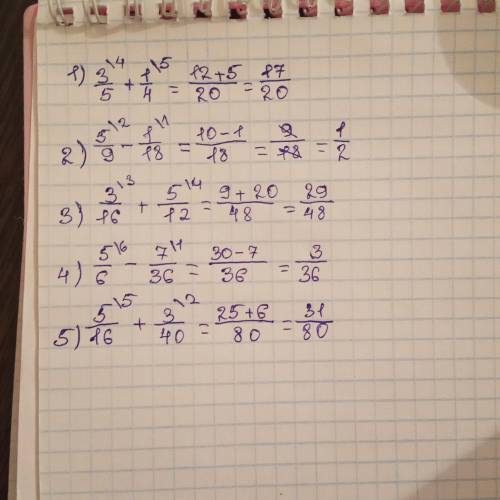 1) 3\4/5 + 1\5/4 = 12+5/20 = 17/20
2) 5\2/9 - 1\1/18 = 10-1/18 = 9/18 = 1/2
3) 3\3/16 + 5\4/12 = 9+20/48 = 29/48
4) 5\6/6 - 7\1/36 = 30-7/36 = 3/36
5) 5\5/16 + 3\2/40 = 25+6/80 = 31/80